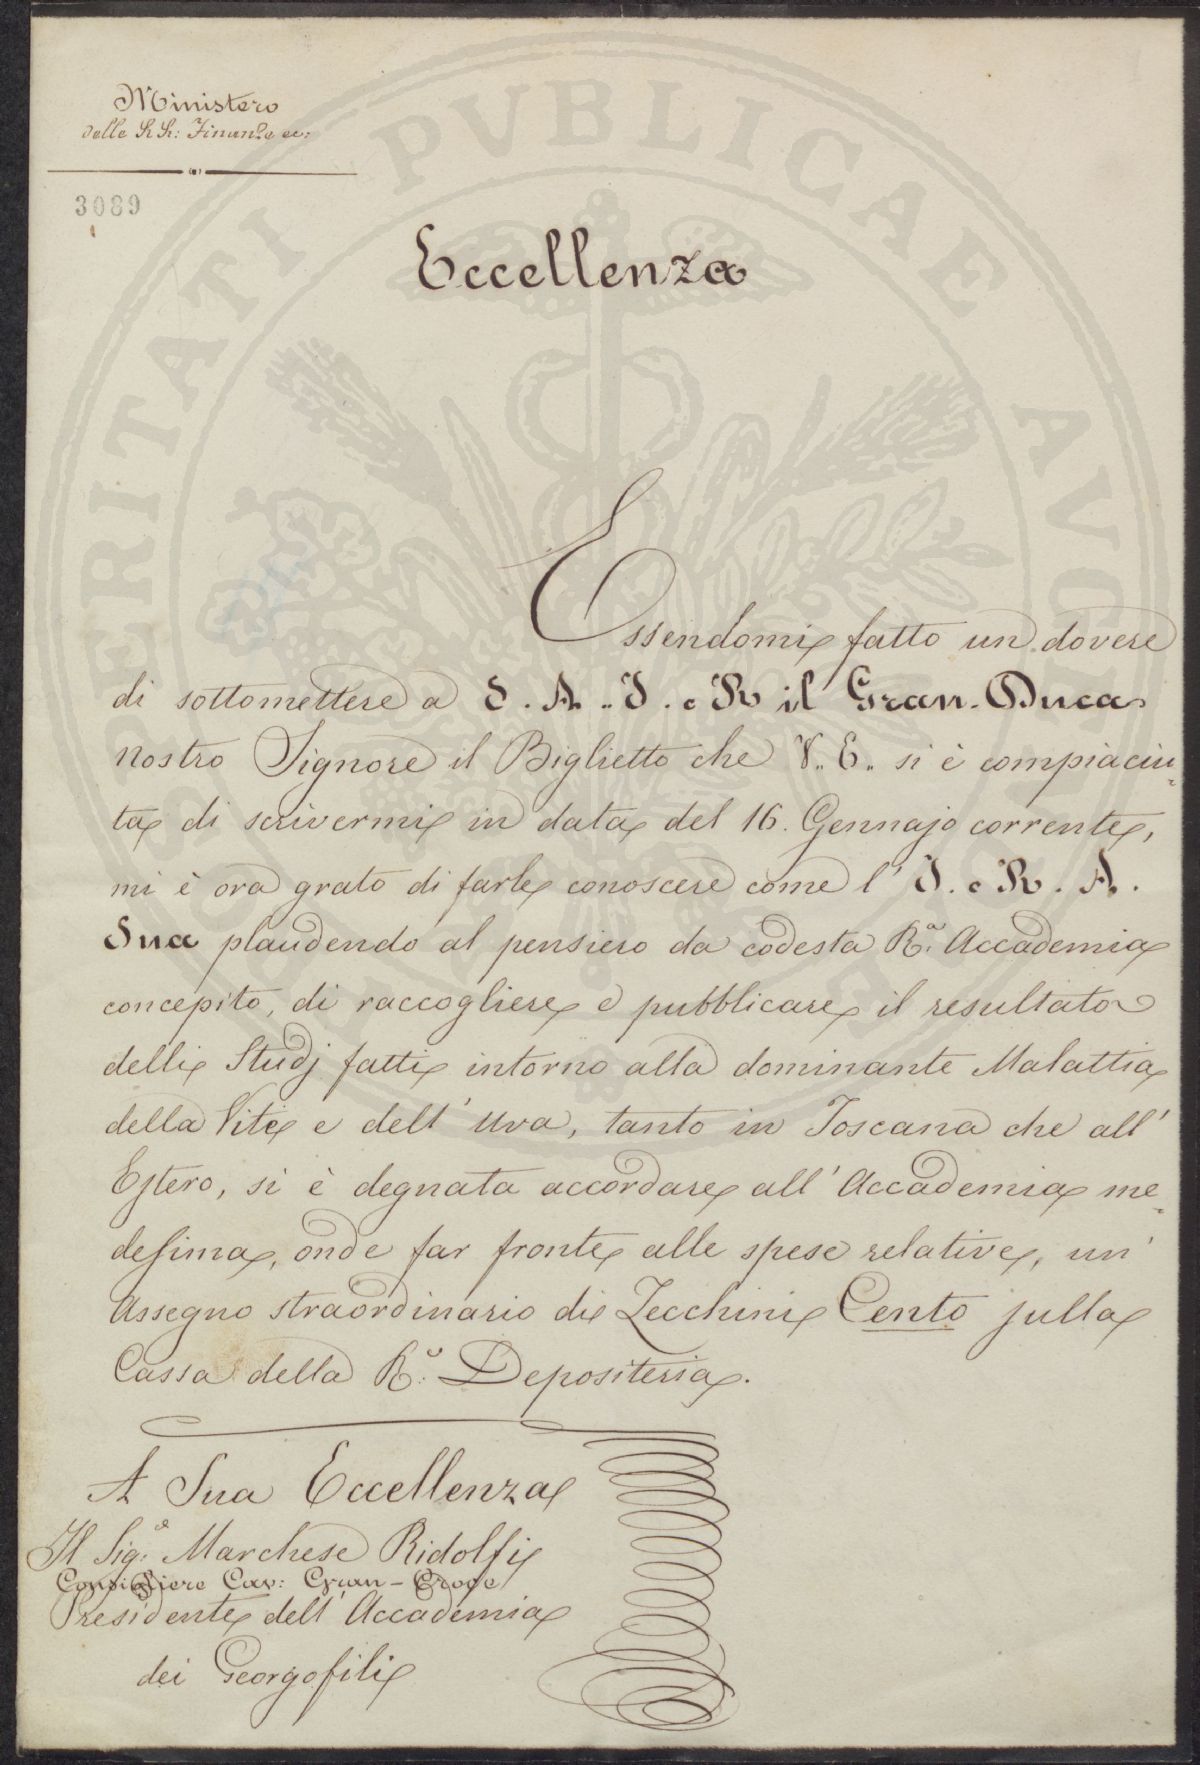 Ministero
delle RR: Finanze ec:
3089
Eccellenza
Essendomi fatto un dovere
di sottomettere a S. A. I. e R il Gran-Duca
nostro Signore il Biglietto che V. E. si è compiaciu-
ta di scrivermi in data del 16. Gennajo corrente,
mi è ora grato di farle conoscere come l'I. e R. A.
Sua plaudendo al pensiero da codesta R.ª Accademia
concepito, di raccogliere e pubblicare il resultato
delli Studj fatti intorno alla dominante Malattia
della Vite e dell'Uva, tanto in Toscana che all'
Estero, si è degnata accordare all'Accademia me-
desima, onde far fronte alle spese relative, un'
Assegno straordinario di Zecchini Cento sulla
Cassa della R.ª Depositeria.
A Sua Eccellenza
Il Sig.e Marchese Ridolfi
Consigliere Cav: Gran-Croce
Presidente dell'Accademia
dei Georgofili
PROSPERITATI PVBLICAE AVGENDAE